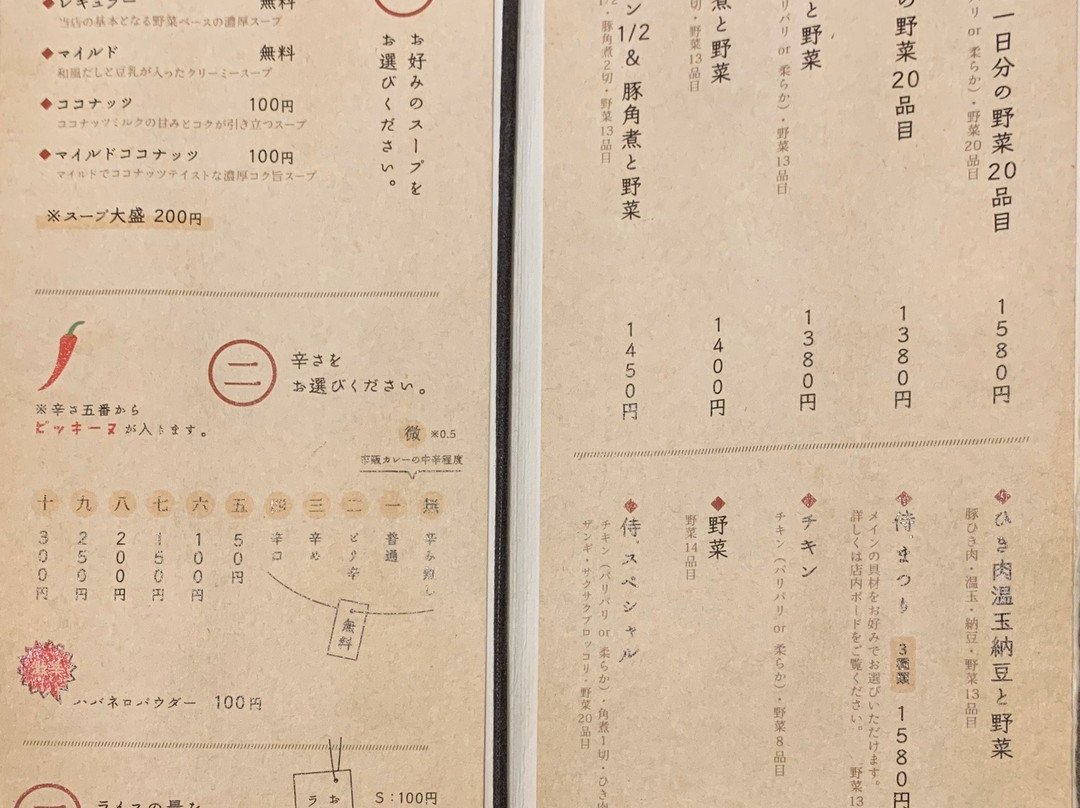 レギュラー 無料
当店の基本となる野菜ベースの濃厚スープ
マイルド 無料
和風だしと豆乳が入ったクリーミースープ
ココナッツ 100円
ココナッツミルクの甘みとコクが引き立つスープ
マイルドココナッツ 100円
マイルドでココナッツテイストな濃厚コク旨スープ
※スープ大盛 200円
お好みのスープを
お選びください。
二
辛さを
お選びください。
※辛さ五番から
ピッキーヌが入ります。
微 ※0.5
市販カレーの中辛程度
無 辛み無し
一 普通
二 ピリ辛
三 辛め
四 辛口
無料
五 50円
六 100円
七 150円
八 200円
九 250円
十 300円
ハバネロパウダー 100円
S:100円
一日分の野菜20品目
リ or 柔らか)・野菜20品目
1580円
の野菜20品目
1380円
と野菜
パリ or 柔らか)・野菜13品目
1380円
煮と野菜
切・野菜13品目
1400円
ン1/2 & 豚角煮と野菜
1/2・豚角煮2切・野菜13品目
1450円
ひき肉温玉納豆と野菜
豚ひき肉・温玉・納豆・野菜13品目
侍まつり 3種類 1580円
メインの具材をお好みでお選びいただけます。
詳しくは店内ボードをご覧ください。 野菜13
チキン
チキン(パリパリ or 柔らか)・野菜8品目
野菜
野菜14品目
侍スペシャル
チキン(パリパリ or 柔らか)・角煮1切・ひき肉
ザンギ・サクサクブロッコリ・野菜20品目